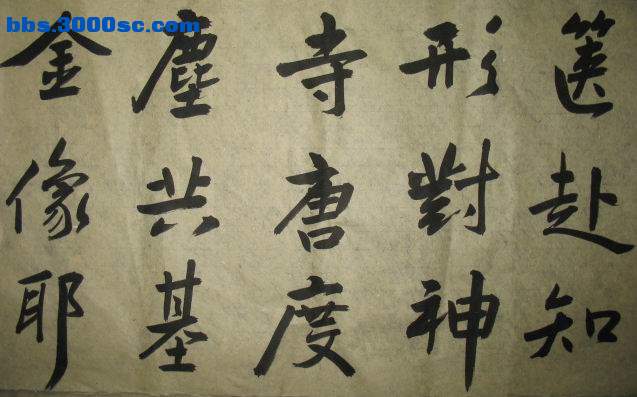 bbs.3000sc.com
篋赴知
形對神
寺唐度
塵共基
金像耶